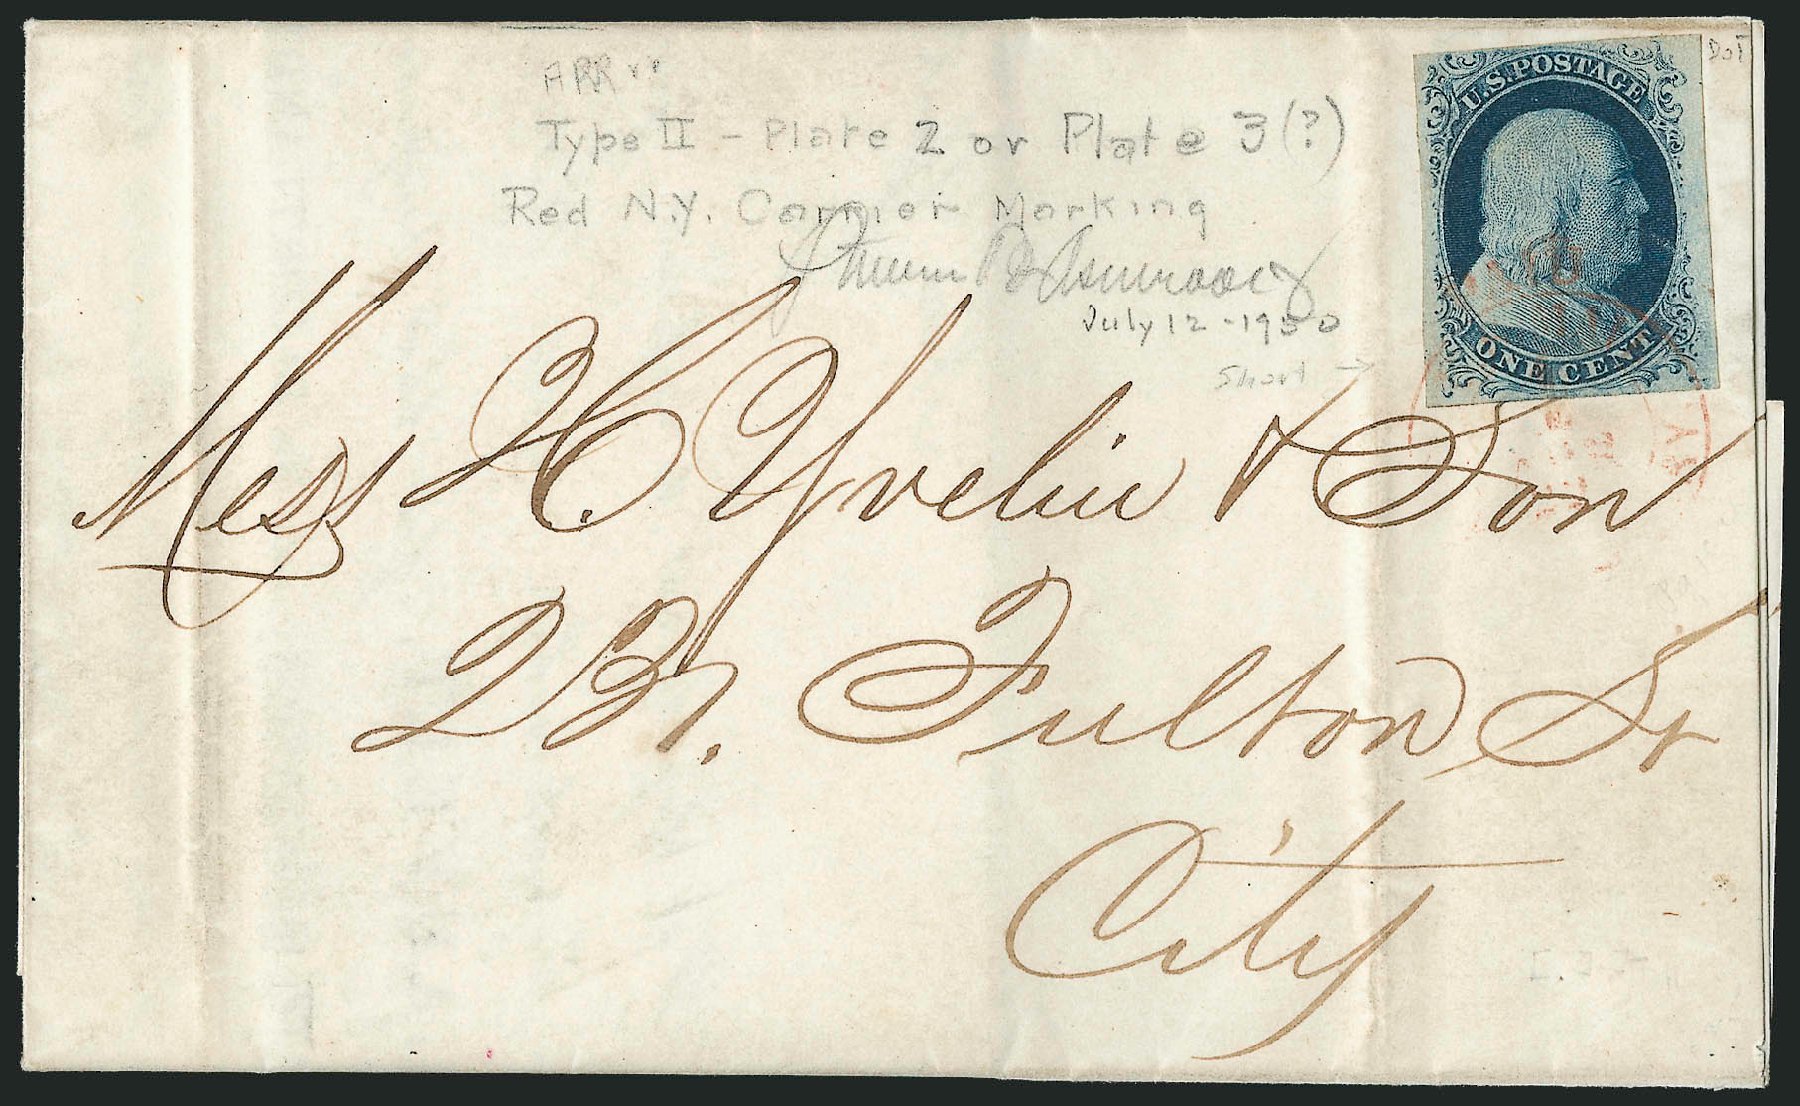 Type II - Plate 2 or Plate 3(?)
Red N.Y. Carrier Marking
July 12 - 1950
Short →
DOT
U.S. POSTAGE
ONE CENT
Mess H. Yvelin & Son
231. Fulton St
City